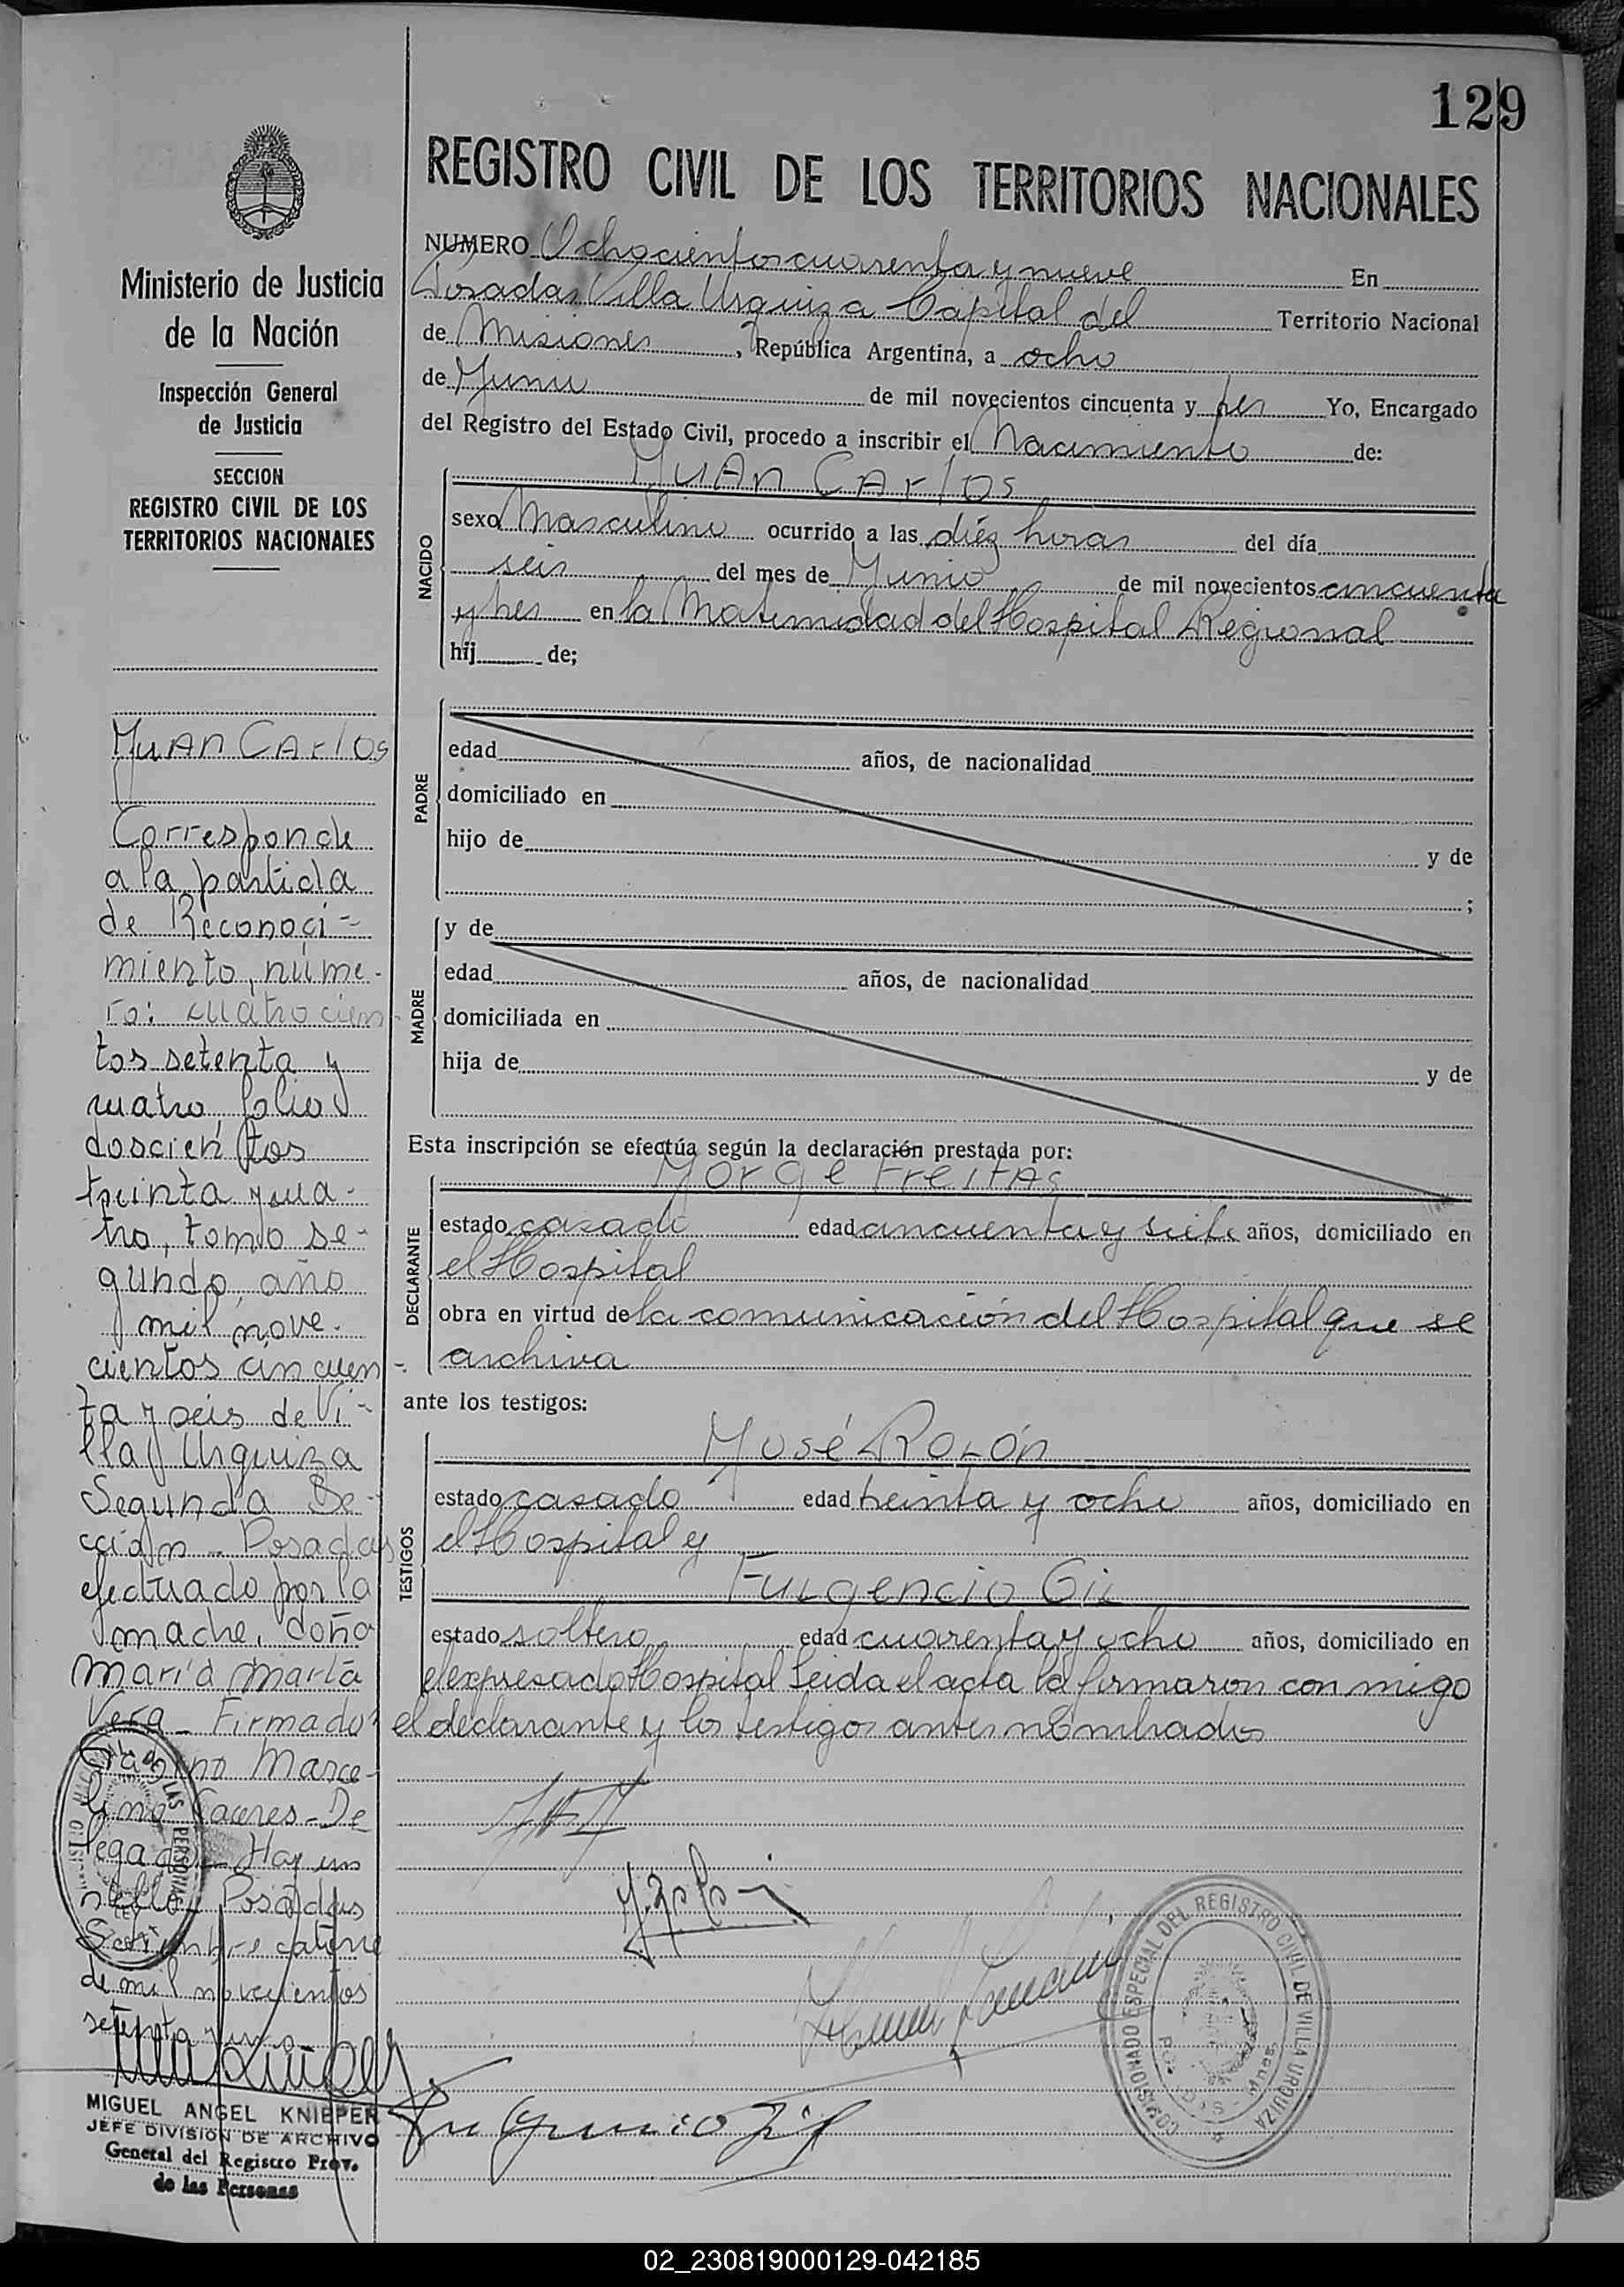 129
REGISTRO CIVIL DE LOS TERRITORIOS NACIONALES
NUMERO Ochocientos cuarenta y nueve En
Posadas Villa Urquiza Capital del Territorio Nacional
de Misiones, República Argentina, a ocho
de Junio de mil novecientos cincuenta y tres Yo, Encargado
del Registro del Estado Civil, procedo a inscribir el Nacimiento de:
NACIDO
JUAN CArlOs
sexo Masculino ocurrido a las diéz horas del día
seis del mes de Junio de mil novecientos cincuenta
y tres en la Maternidad del Hospital Regional
hij de;
PADRE
edad años, de nacionalidad
domiciliado en
hijo de y de
;
MADRE
y de
edad años, de nacionalidad
domiciliada en
hija de y de
Esta inscripción se efectúa según la declaración prestada por:
DECLARANTE
Jorge FreitAs
estado casado edad cincuenta y siete años, domiciliado en
el Hospital
obra en virtud de la comunicación del Hospital que se
archiva
ante los testigos:
TESTIGOS
José ROLÓn
estado casado edad treinta y ocho años, domiciliado en
el Hospital y
Fulgencio Gil
estado soltero edad cuarenta y ocho años, domiciliado en
el expresado Hospital Leida el acta la firmaron con migo
el declarante y los testigos antes nombrados
COMISIONADO ESPECIAL DEL REGISTRO CIVIL DE VILLA URQUIZA
Ministerio de Justicia
de la Nación
Inspección General
de Justicia
SECCION
REGISTRO CIVIL DE LOS
TERRITORIOS NACIONALES
JUAN CArlOs
Corresponde
a la partida
de Reconoci-
miento, núme-
ro: cuatrocien-
tos setenta y
cuatro, folio
doscientos
treinta y cua-
tro, tomo se-
gundo, año
mil nove-
cientos cincuen-
ta y seis de Vi-
lla Urquiza
Segunda Se-
cción - Posadas
efectuado por la
madre, doña
María Marta
Vera - Firmado:
Marce-
lino Caceres - De
legado - Hay un
sello - Posadas
Setiembre catorce
de mil novecientos
setenta y
MIGUEL ANGEL KNIEPER
JEFE DIVISION DE ARCHIVO
General del Registro Prov.
de las Personas
02_230819000129-042185